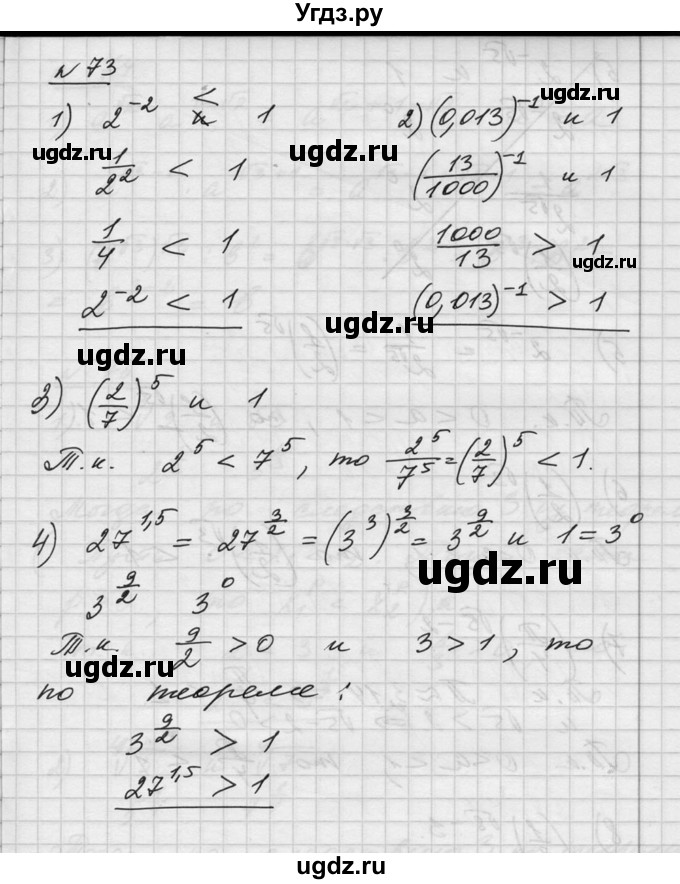 Угдз.ру
N 73
1) 2^{-2} < 1
1/2^2 < 1
1/4 < 1
2^{-2} < 1
2) (0,013)^{-1} и 1
(13/1000)^{-1} и 1
1000/13 > 1
(0,013)^{-1} > 1
3) (2/7)^5 и 1
Т.к. 2^5 < 7^5, то 2^5/7^5 = (2/7)^5 < 1.
4) 27^{1,5} = 27^{3/2} = (3^3)^{3/2} = 3^{9/2} и 1 = 3^0
3^{9/2} 3^0
Т.к. 9/2 > 0 и 3 > 1, то
по теореме:
3^{9/2} > 1
27^{1,5} > 1
ugdz.ru
ugdz.ru
ugdz.ru
ugdz.ru
ugdz.ru
ugdz.ru
ugdz.ru
ugdz.ru
ugdz.ru
ugdz.ru
ugdz.ru